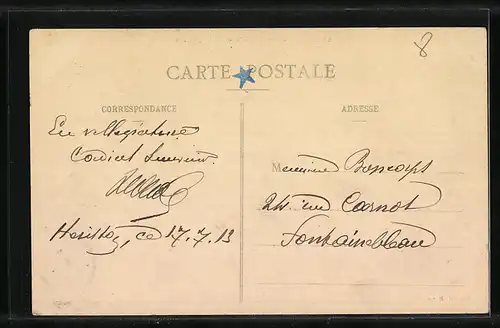 8
CARTE POSTALE
CORRESPONDANCE
ADRESSE
En villégiature
Cordial Souvenir
ce 17.7.13
Monsieur
24 rue Carnot
Fontainebleau